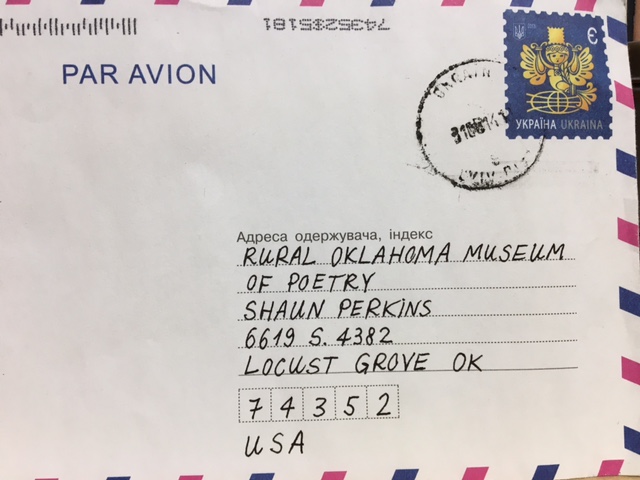 74352*5181
PAR AVION
Є
УКРАЇНА UKRAINA
Адреса одержувача, індекс
RURAL OKLAHOMA MUSEUM
OF POETRY
SHAUN PERKINS
6619 S. 4382
LOCUST GROVE OK
74352
USA